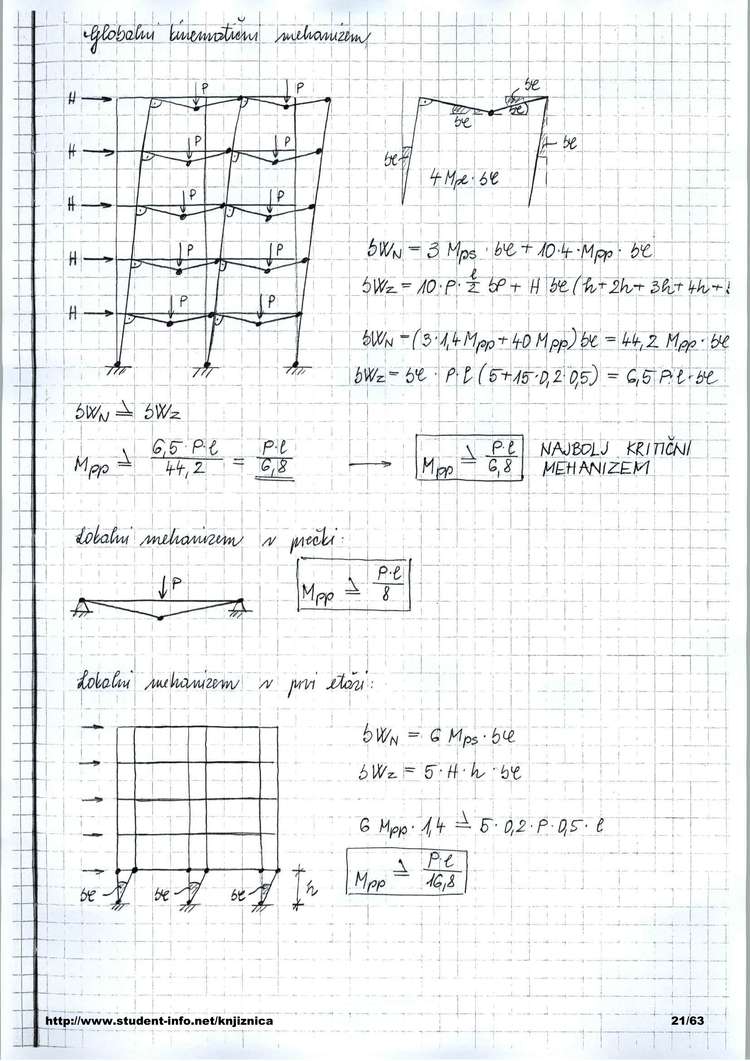 Globalni kinematični mehanizem
H P P δφ
δφ δφ
H P P δφ δφ
4 Mpl · δφ
H P P
H P P
H P P
δWN = 3 Mps · δφ + 10·4·Mpp · δφ
δWZ = 10·P· l/2 δφ + H δφ (h+2h+3h+4h+
δWN = (3·1,4 Mpp + 40 Mpp) δφ = 44,2 Mpp · δφ
δWZ = δφ · P·l (5+15·0,2·0,5) = 6,5 P·l·δφ
δWN ≧ δWZ
Mpp ≧ 6,5·P·l / 44,2 = P·l / 6,8 → Mpp ≧ P·l / 6,8 NAJBOLJ KRITIČNI
MEHANIZEM
Lokalni mehanizem v prečki:
P Mpp ≧ P·l / 8
Lokalni mehanizem v prvi etaži:
δWN = 6 Mps · δφ
δWZ = 5·H·h·δφ
6 Mpp · 1,4 ≧ 5·0,2·P·0,5·l
Mpp ≧ P·l / 16,8
δφ δφ δφ h
http://www.student-info.net/knjiznica 21/63